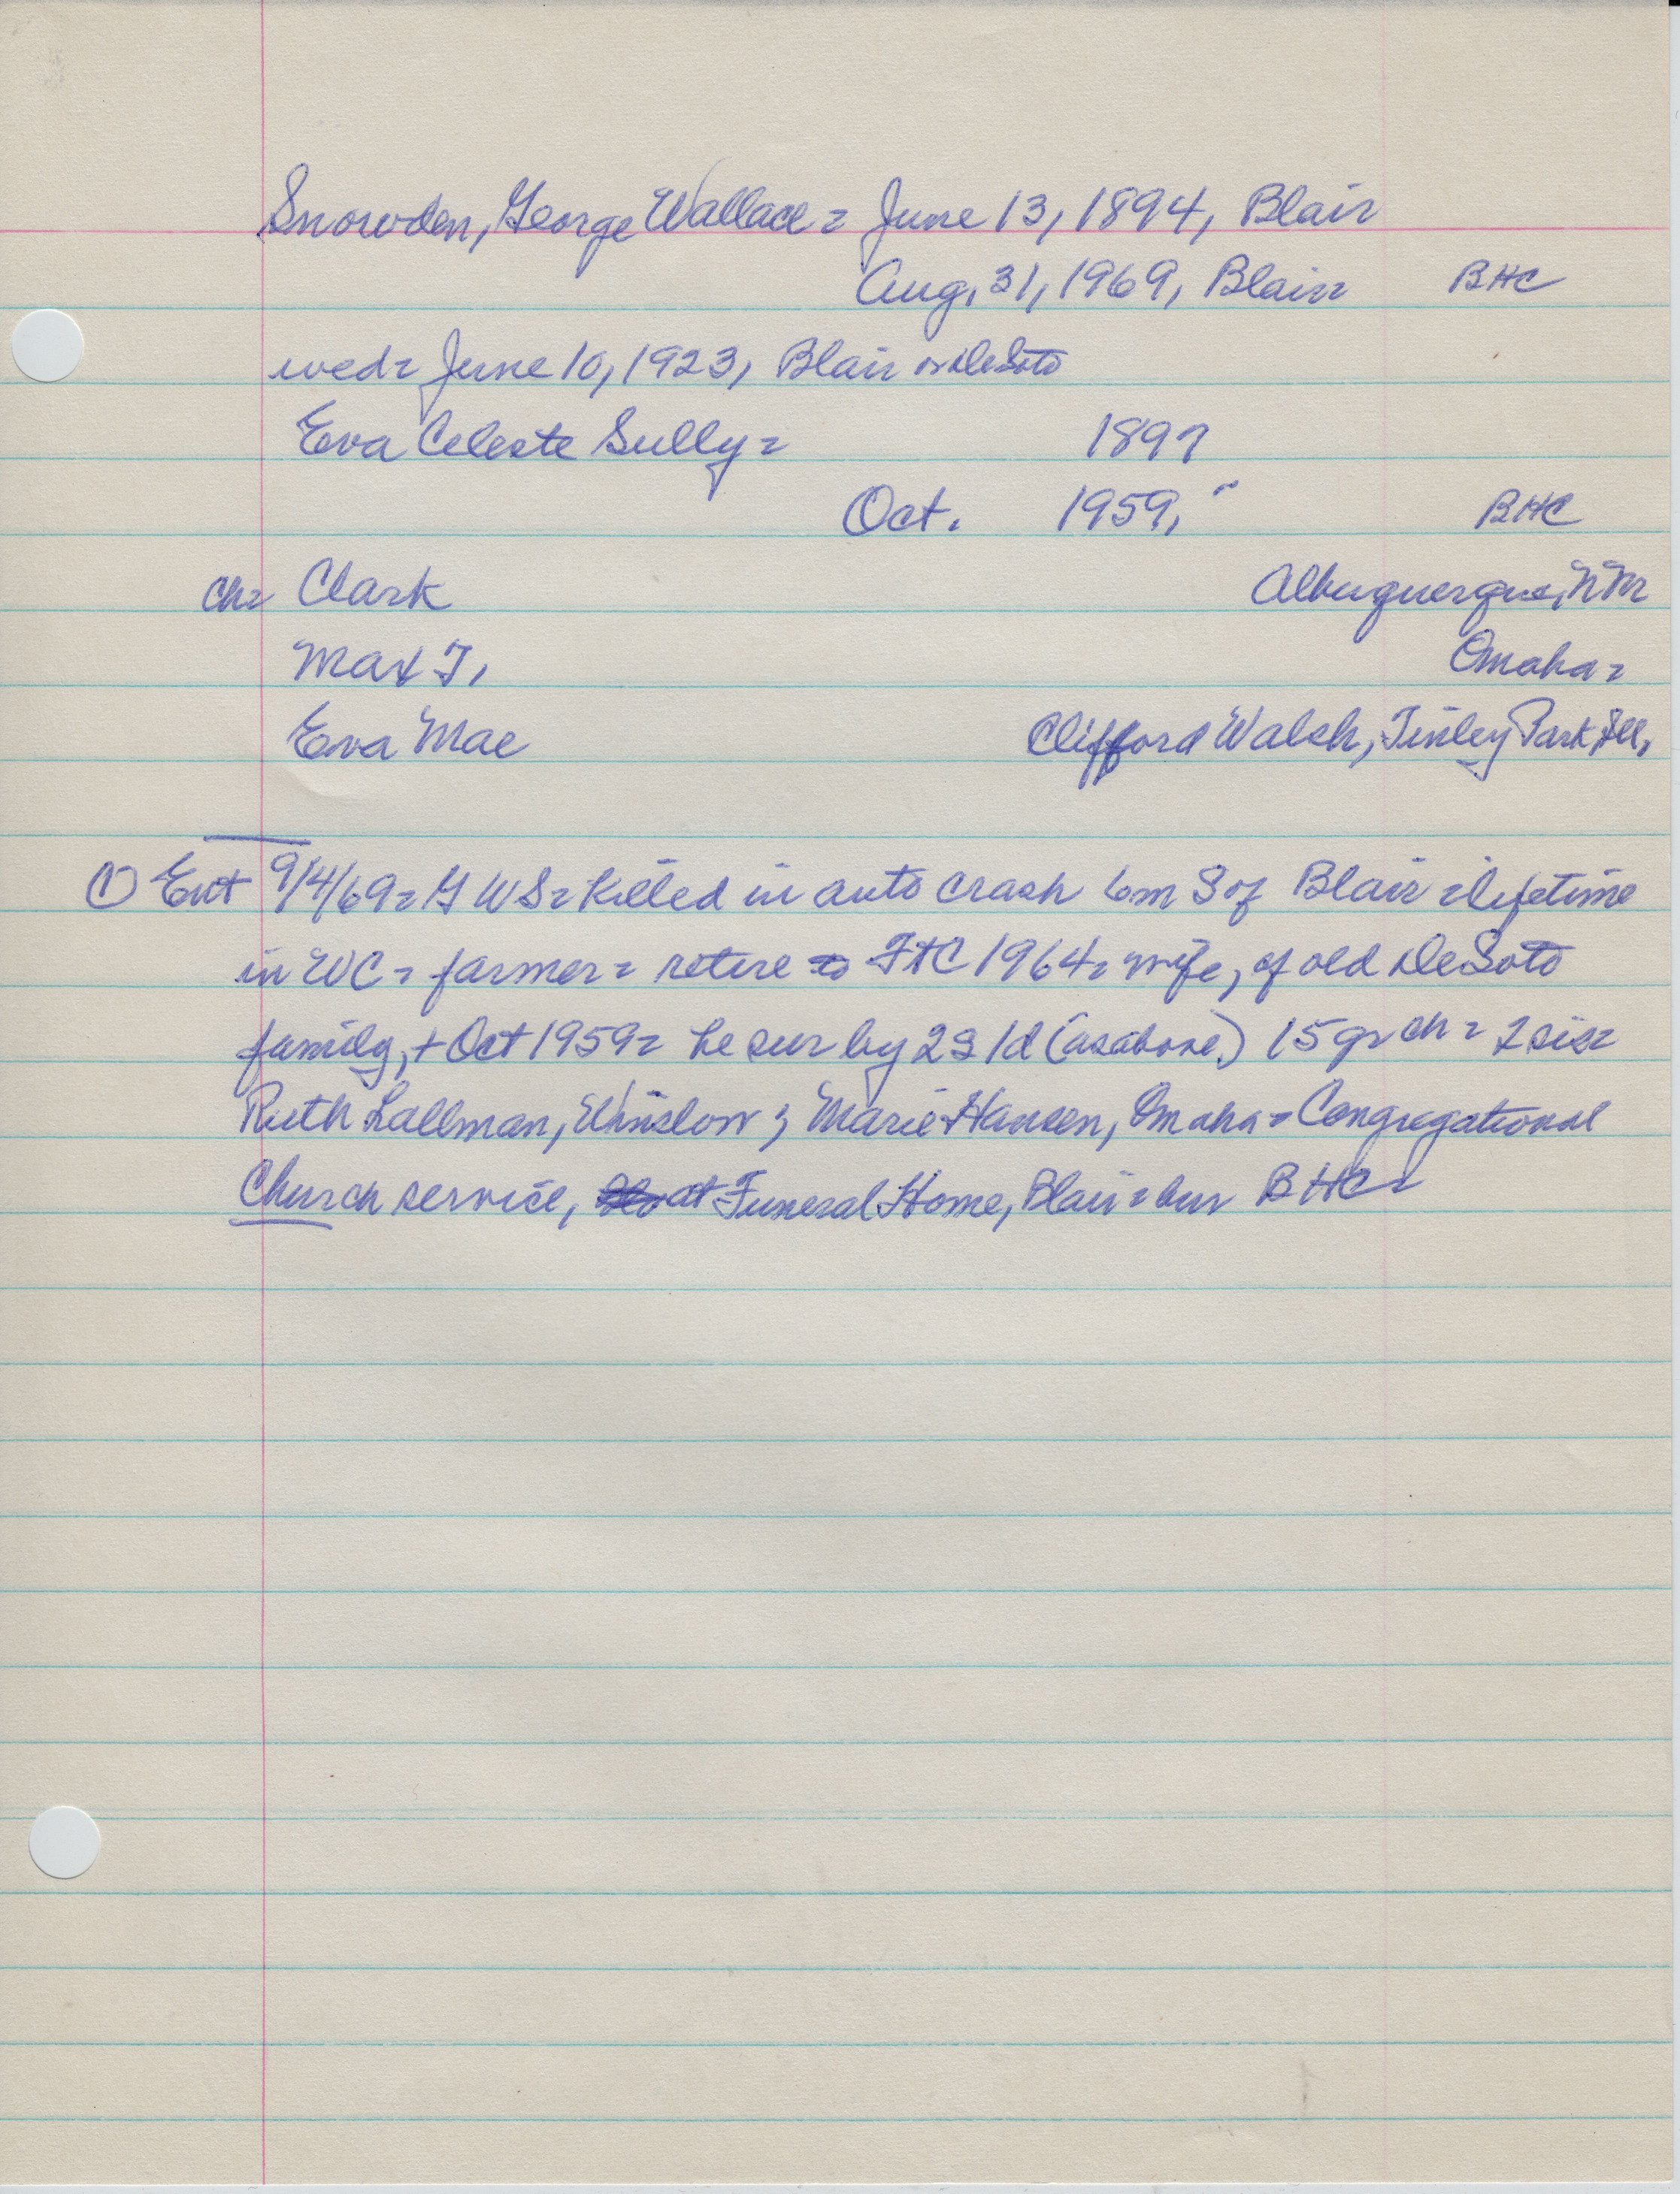 Snowden, George Wallace = June 13, 1894, Blair
Aug. 31, 1969, Blair BHC
wed = June 10, 1923, Blair or DeSoto
Eva Celeste Sully = 1897
Oct. 1959, " BHC
ch = Clark Albuquerque, NM
Max T. Omaha =
Eva Mae Clifford Walsh, Tinley Park, Ill,
① Ent 9/4/69 = G W S = Killed in auto crash 6m S of Blair = lifetime
in WC = farmer = retire to FtC 1964 = wife, of old DeSoto
family, + Oct 1959 = he sur by 2S 1d (as above) 15 gr ch = 2 sis =
Ruth Lallman, Winslow ; Marie Hansen, Omaha = Congregational
Church service, at Funeral Home, Blair = bur BHC =